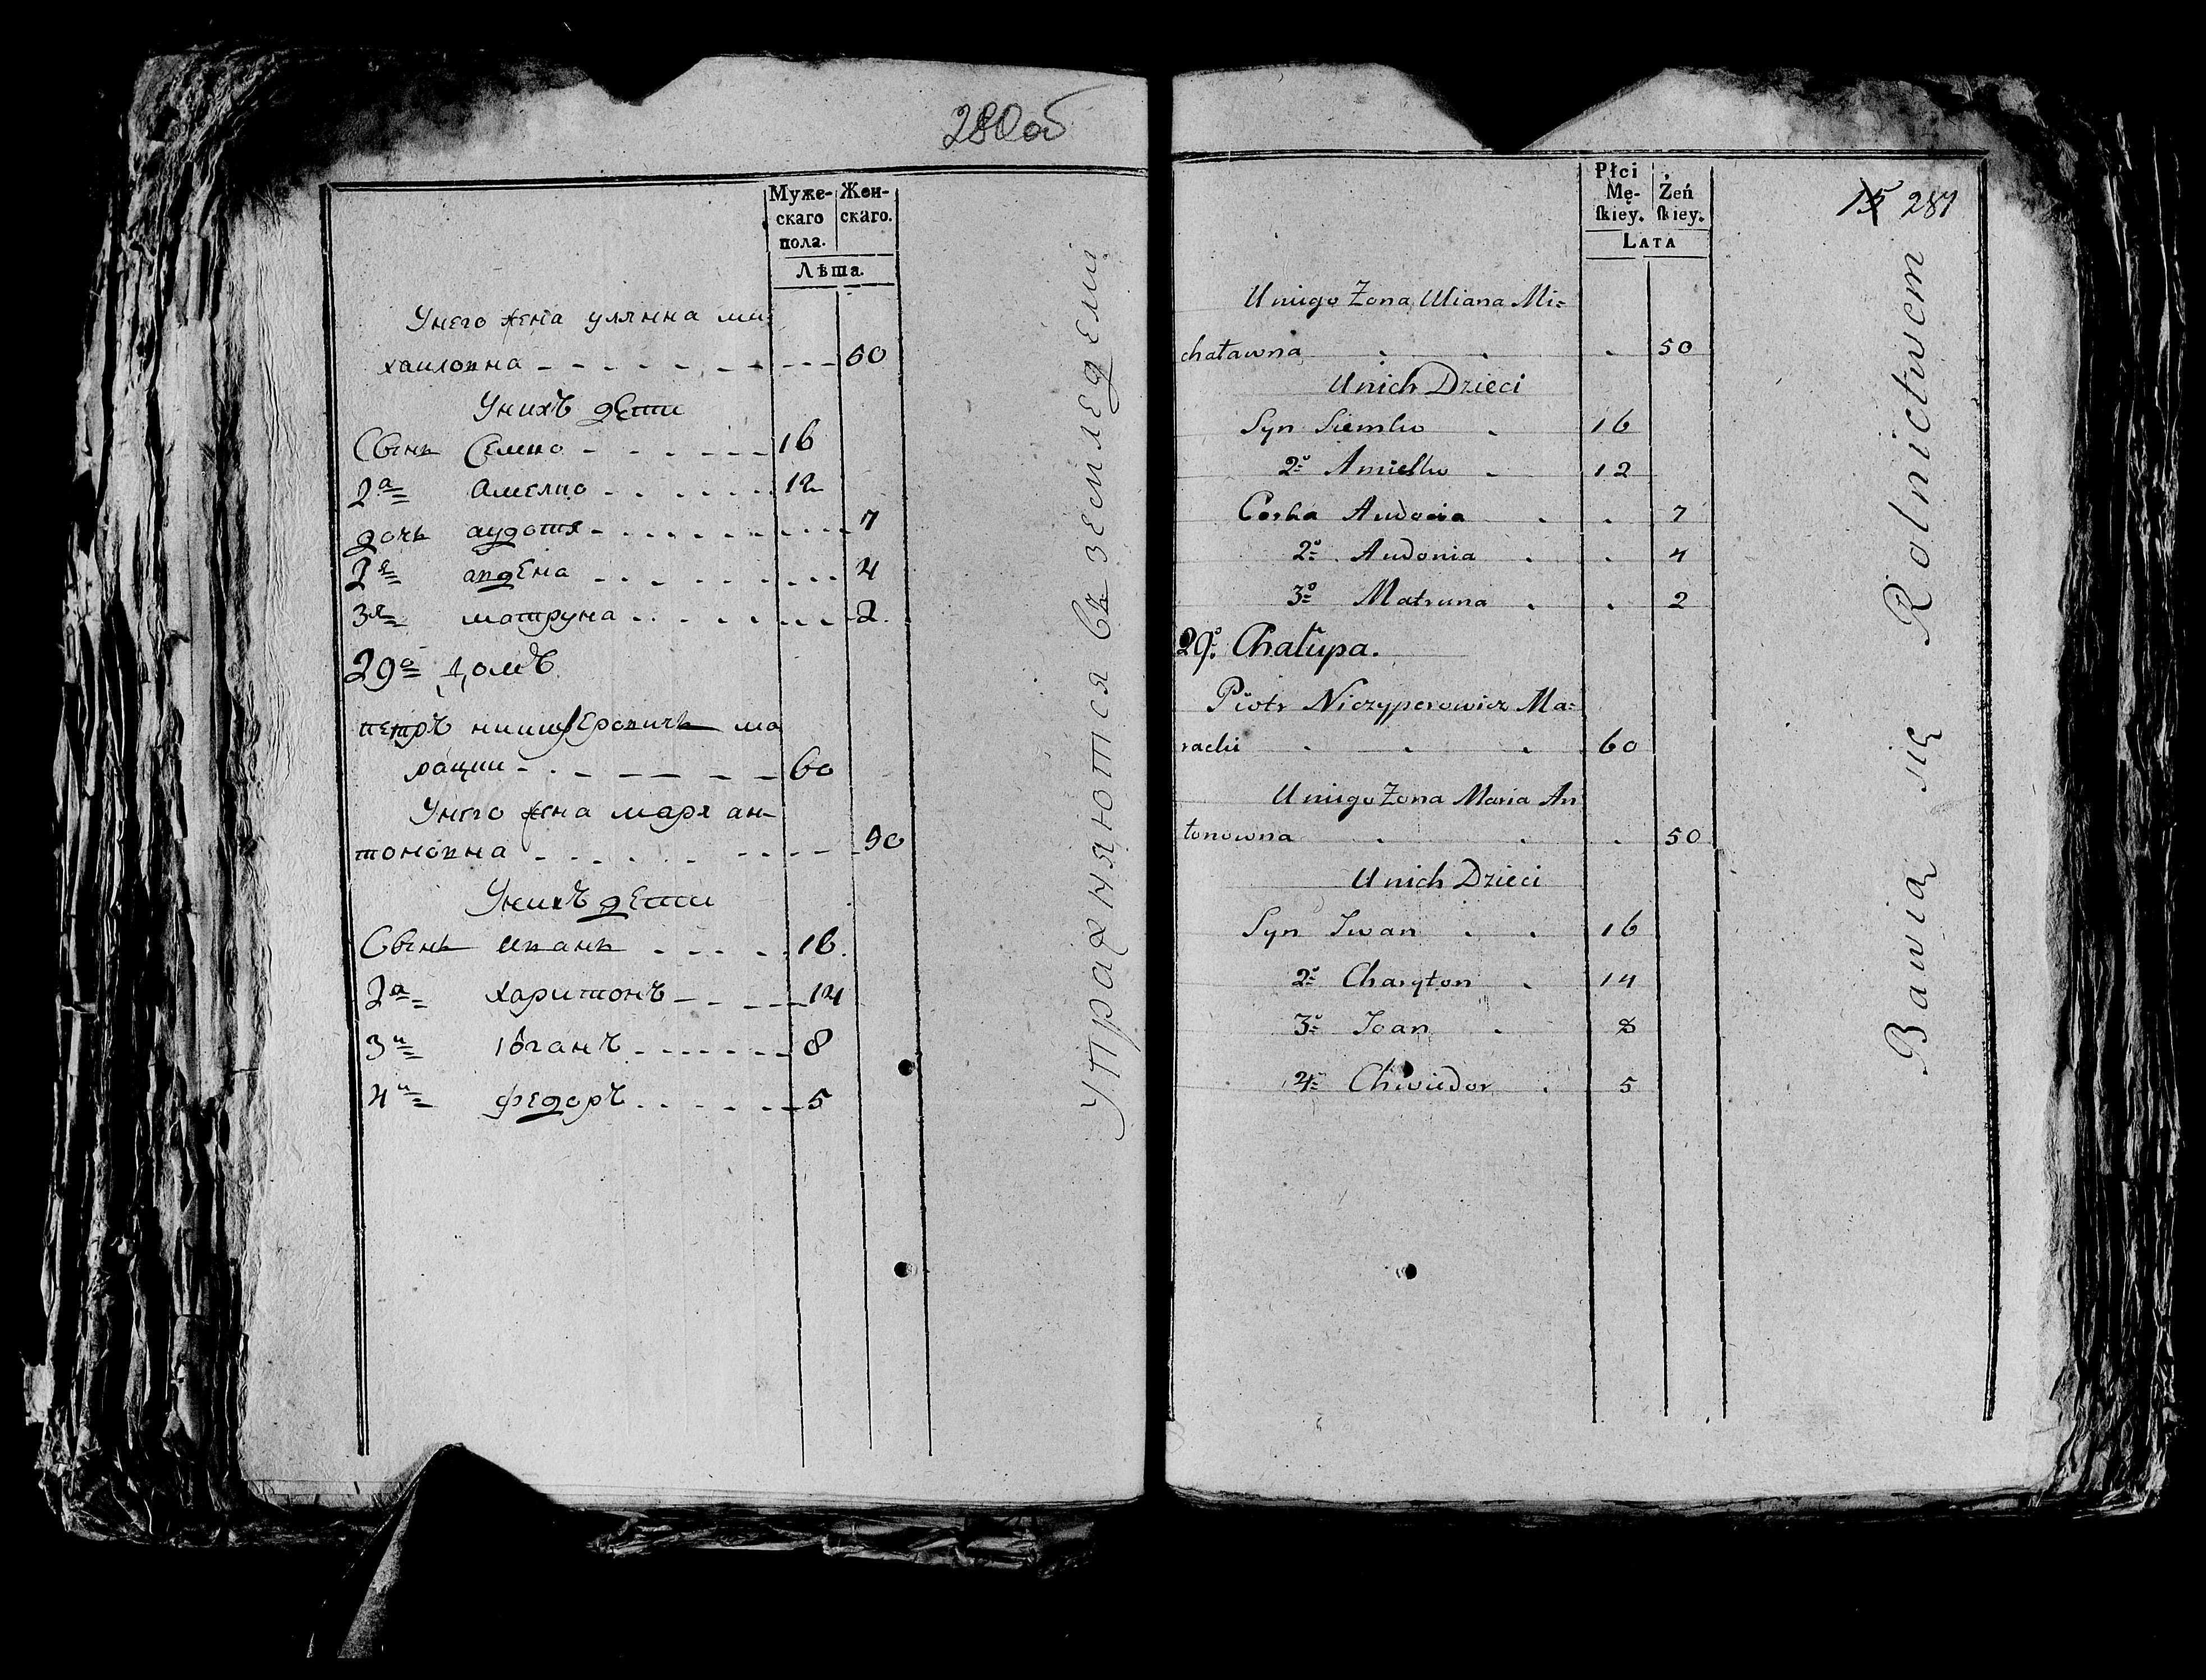 280об
Муже-
скаго
пола.
Жен-
скаго.
Лѣта.
Унего жена улянна ми
хаиловна 50
Унихъ дети
Свень Семко 16
2а Амелко 12
дочь аудотя 7
2я авдена 4
3я мотруна 2
29о домъ
петръ ничиферовичь ма
рацки 60
Унего жена маря ан-
тоновна 50
Унихъ дети
Свень иванъ 16
2а харитонъ 14
3и 8
4и федоръ 5
Упражняются
15 281
Płci
Mę-
skiey.
Żeń
skiey.
Lata
Uniego Zona Uliana Mi=
chaławna 50
Unich Dzieci
Syn Siemko 16
2o Amielko 12
Corka Audocia 7
2o Audonia 4
3o Matruna 2
29o Chałupa.
Piotr Niczyperowicz Ma=
racki 60
Uniego Zona Maria An
tonowna 50
Unich Dzieci
Syn Iwan 16
2o Charyton 14
3o Joan 8
4o Chwiedor 5
Bawią się Rolnictwem